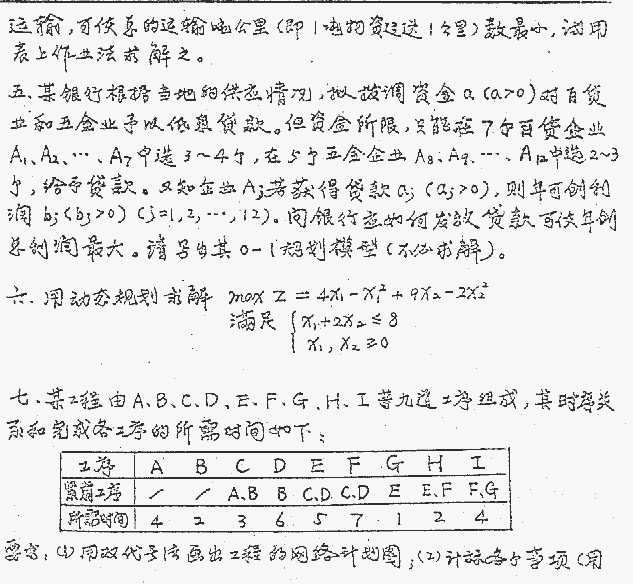 运输,可使总的运输吨公里(即1吨物资运送1公里)数最小,试用
表上作业法求解之。
五、某银行根据当地的供应情况,拟拨调资金a(a>0)对百货
业和五金业予以低息贷款。但资金所限,只能在7个百货企业
A₁、A₂、…、A₇中选3~4个,在5个五金企业A₈、A₉、…、A₁₂中选2~3
个,给予贷款。又知企业Aⱼ若获得贷款aⱼ(aⱼ>0),则年可创利
润bⱼ(bⱼ>0)(j=1,2,…,12)。问银行应如何发放贷款可使年创
总利润最大。请写出其0-1规划模型(不必求解)。
六、用动态规划求解 max Z=4x₁-x₁²+9x₂-2x₂²
满足 { x₁+2x₂≤8
x₁,x₂≥0
七、某工程由A、B、C、D、E、F、G、H、I等九道工序组成,其时序关
系和完成各工序的所需时间如下:
工序 A B C D E F G H I
紧前工序 / / A.B B C.D C.D E E.F F.G
所需时间 4 2 3 6 5 7 1 2 4
要求:(1)用双代号法画出工程的网络计划图;(2)计算各个事项(用